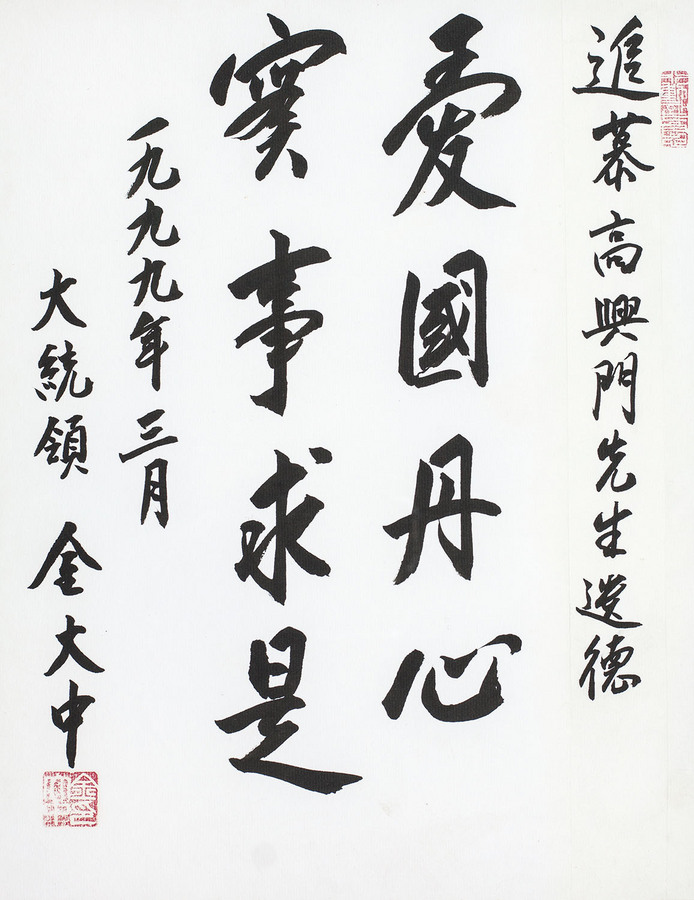 追慕高興門先生遺德
愛國丹心
實事求是
一九九九年 三月
大統領 金大中